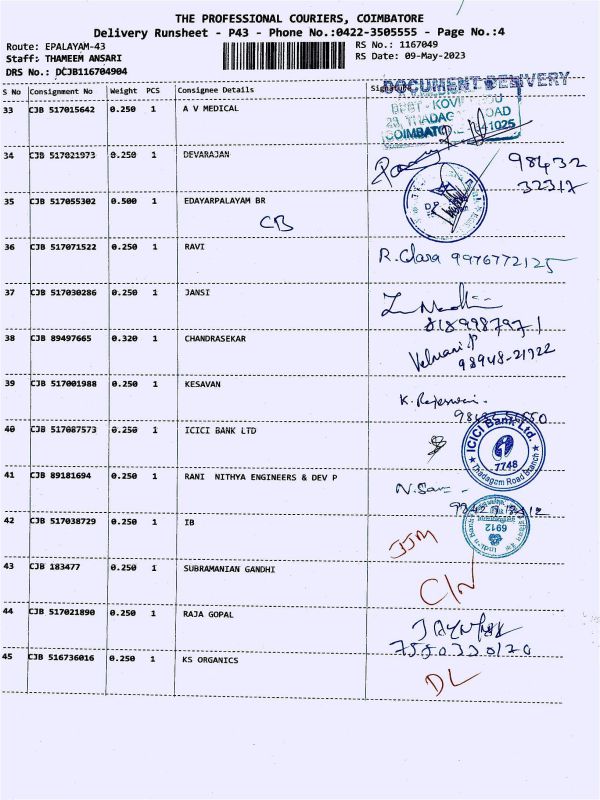 THE PROFESSIONAL COURIERS, COIMBATORE
Delivery Runsheet - P43 - Phone No.:0422-3505555 - Page No.:4
Route: EPALAYAM-43 RS No.: 1167049
Staff: THAMEEM ANSARI RS Date: 09-May-2023
DRS No.: DCJB116704904
S No Consignment No Weight PCS Consignee Details Signature
DOCUMENT DELIVERY
33 CJB 517015642 0.250 1 A V MEDICAL
COIMBATORE 1025
34 CJB 517021973 0.250 1 DEVARAJAN 98432
32317
35 CJB 517055302 0.500 1 EDAYARPALAYAM BR
CB
36 CJB 517071522 0.250 1 RAVI R. Clara 9976772125
37 CJB 517030286 0.250 1 JANSI
8189987971
38 CJB 89497665 0.320 1 CHANDRASEKAR
98948-21922
39 CJB 517001988 0.250 1 KESAVAN K. Rajeswari
40 CJB 517087573 0.250 1 ICICI BANK LTD ICICI Bank Ltd.
7748
Thadagom Road Branch
41 CJB 89181694 0.250 1 RANI NITHYA ENGINEERS & DEV P
42 CJB 517038729 0.250 1 IB 6912
43 CJB 183477 0.250 1 SUBRAMANIAN GANDHI
C/N
44 CJB 517021890 0.250 1 RAJA GOPAL
7550330120
45 CJB 516736016 0.250 1 KS ORGANICS
DL